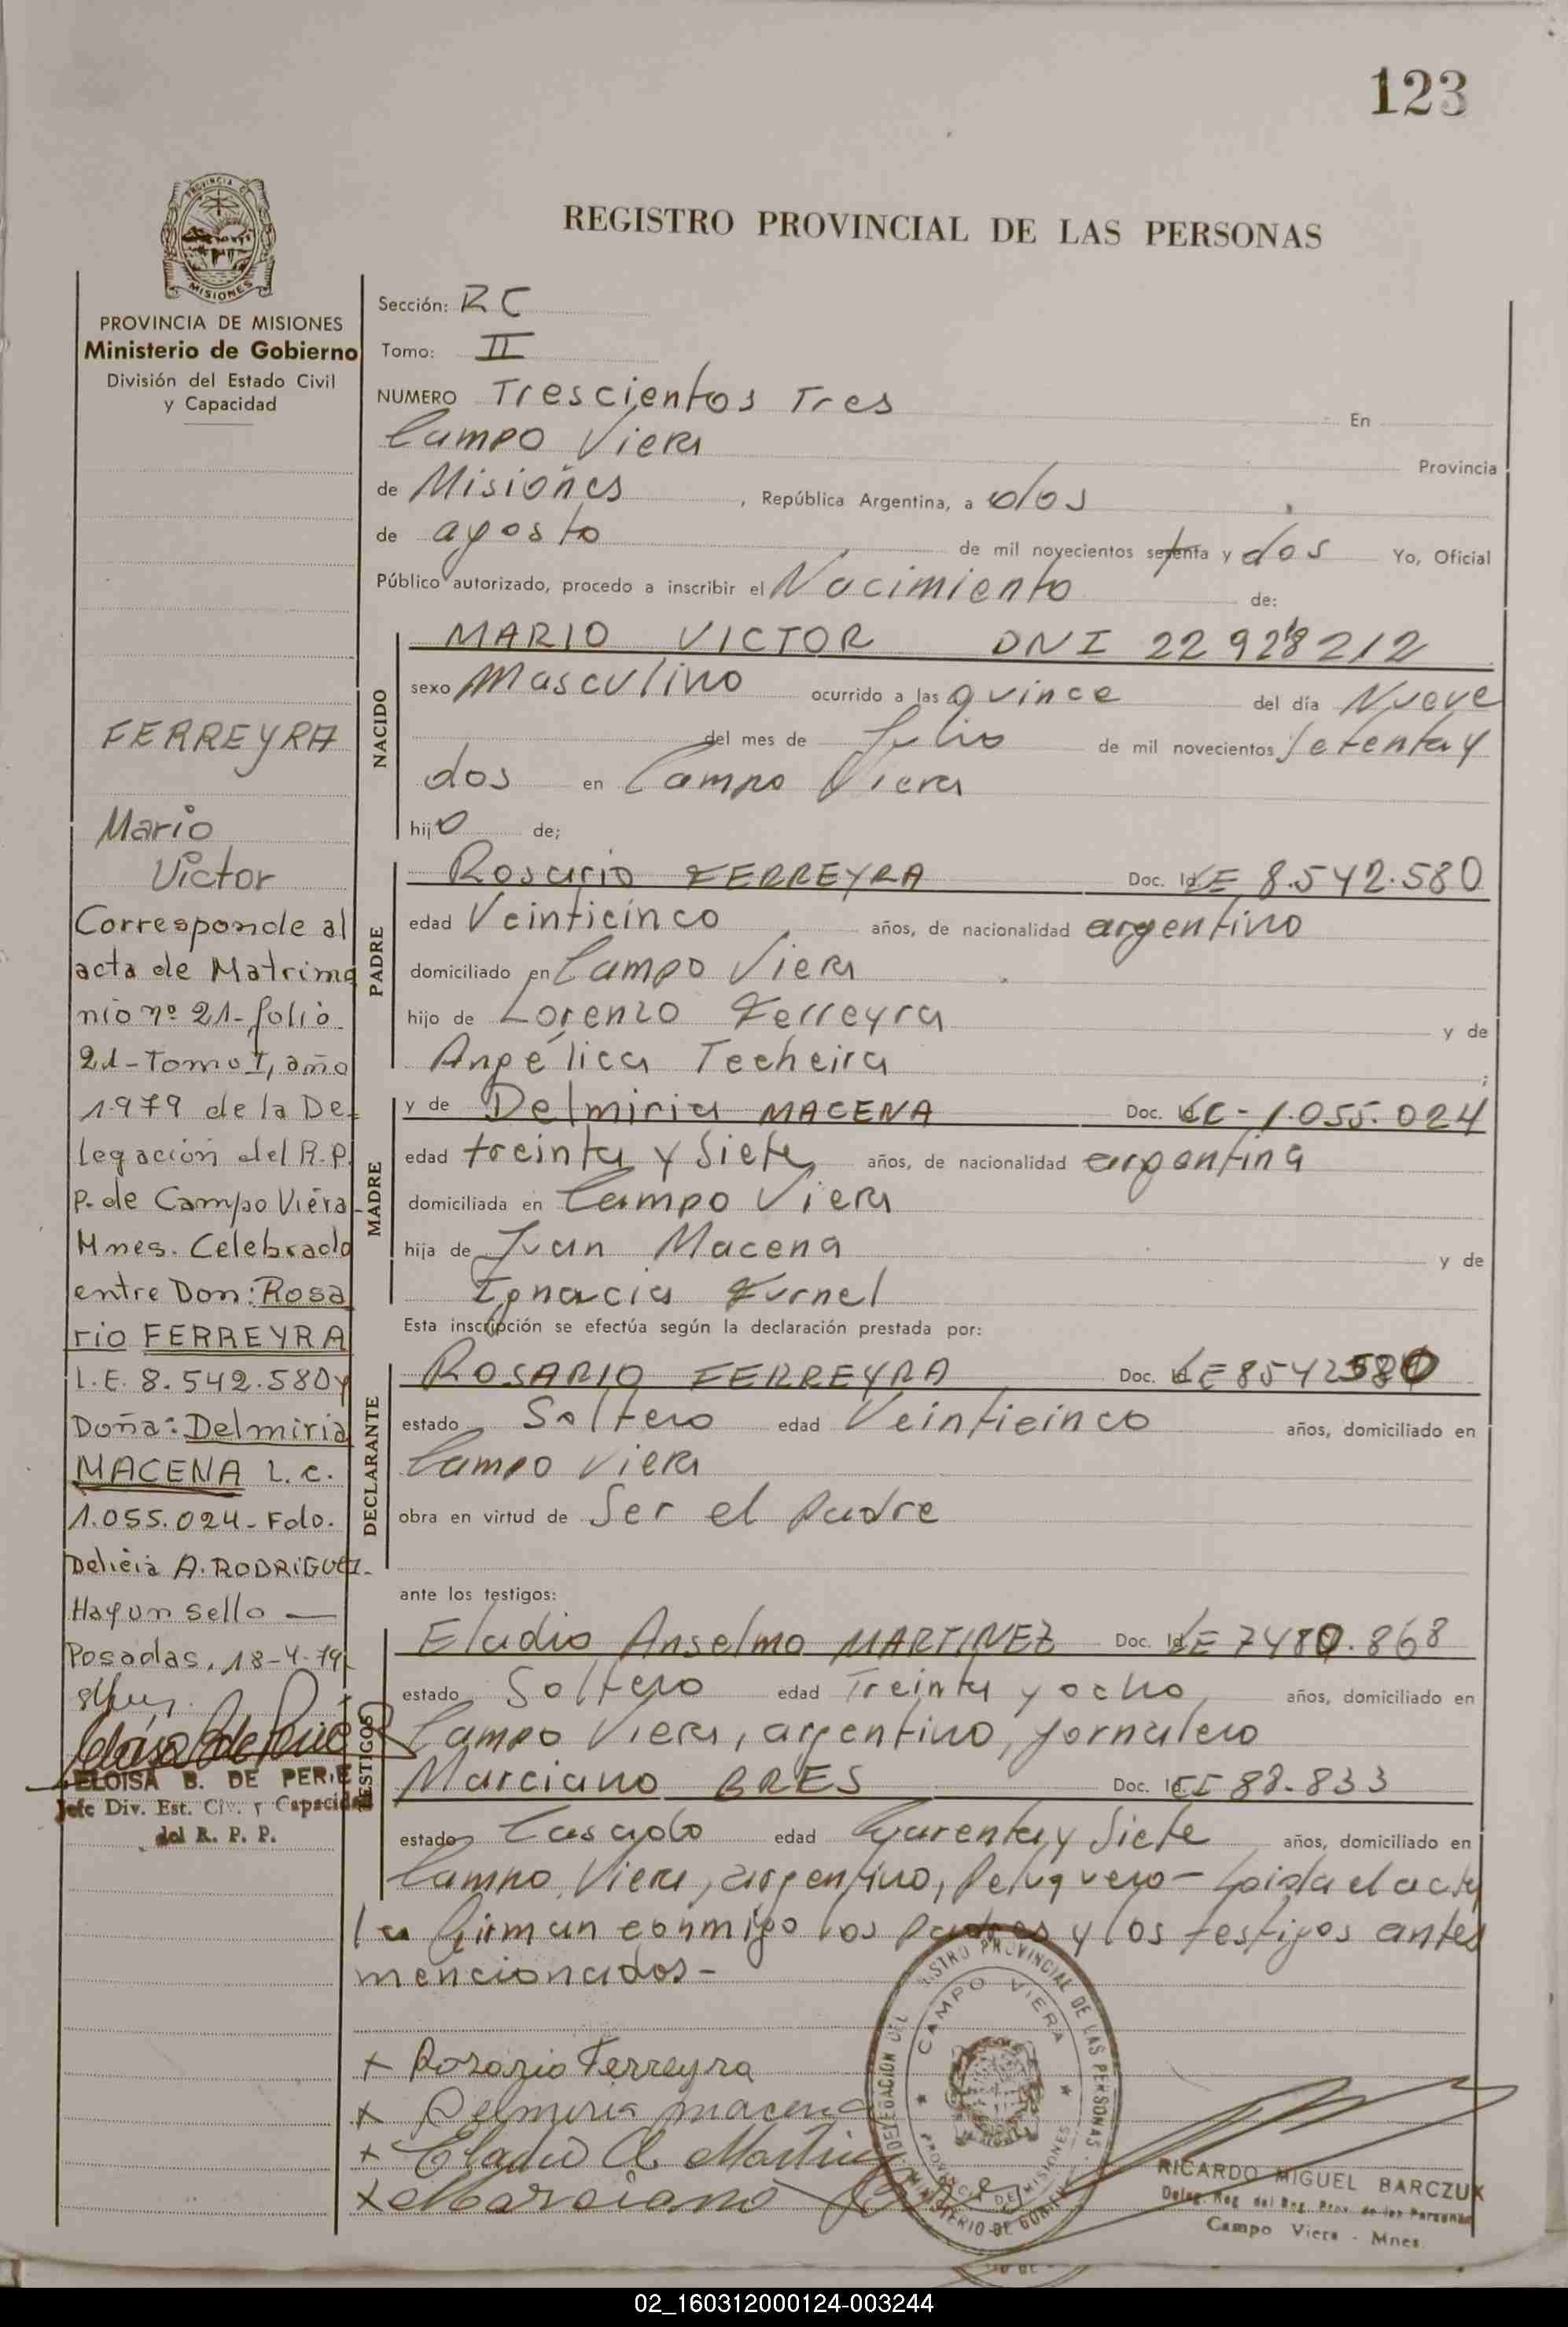 123
REGISTRO PROVINCIAL DE LAS PERSONAS
PROVINCIA DE MISIONES
PROVINCIA DE MISIONES
Ministerio de Gobierno
División del Estado Civil
y Capacidad
FERREYRA
Mario
Victor
Corresponde al
acta de Matrimo
nio nº 21- folio
21- Tomo I, año
1.979 de la De-
legación del R.P.
P. de Campo Viera
Mnes. Celebrado
entre Don: Rosa
rio FERREYRA
L.E. 8.542.580 y
Doña: Delmiria
MACENA L.C.
1.055.024- Fdo.
Delicia A. RODRIGUEZ-
Hay un sello —
Posadas, 18-4-79
ELOISA B. DE PERIE
Jefe Div. Est. Civ. y Capacidad
del R. P. P.
Sección: RC
Tomo: II
NUMERO Trescientos Tres En
Campo Viera Provincia
de Misiones, República Argentina, a dos
de agosto de mil novecientos setenta y dos Yo, Oficial
Público autorizado, procedo a inscribir el Nacimiento de:
NACIDO
MARIO VICTOR DNI 22 928 212
sexo Masculino ocurrido a las quince del día Nueve
del mes de Julio de mil novecientos setenta y
dos en Campo Viera
hijo de;
PADRE
Rosario FERREYRA Doc. Id LE 8.542.580
edad Veinticinco años, de nacionalidad argentino
domiciliado en Campo Viera
hijo de Lorenzo Ferreyra y de
Angélica Techeira ;
MADRE
y de Delmiria MACENA Doc. LC- 1.055.024
edad treinta y siete años, de nacionalidad argentina
domiciliada en Campo Viera
hija de Juan Macena y de
Ignacia Furnel
Esta inscripción se efectúa según la declaración prestada por:
DECLARANTE
ROSARIO FERREYRA Doc. LE 8542580
estado Soltero edad Veinticinco años, domiciliado en
Campo Viera
obra en virtud de Ser el Padre
ante los testigos:
TESTIGOS
Eladio Anselmo MARTINEZ Doc. Id LE 7480.868
estado Soltero edad Treinta y ocho años, domiciliado en
Campo Viera, argentino, jornalero
Marciano BRES Doc. Id CI 88.833
estado Casado edad Cuarenta y Siete años, domiciliado en
Campo Viera, argentino, Peluquero- Leida el acta
la firman conmigo los Padres y los testigos antes
mencionados-
x Rosario Ferreyra
x Delmiria macena
x Eladio A. Martinez
x Marciano Bres
DELEGACION DEL REGISTRO PROVINCIAL DE LAS PERSONAS
CAMPO VIERA
PROVINCIA DE MISIONES
MINISTERIO DE GOBIERNO
RICARDO MIGUEL BARCZUK
Deleg. Reg. del Reg. Prov. de las Personas
Campo Viera - Mnes.
02_160312000124-003244